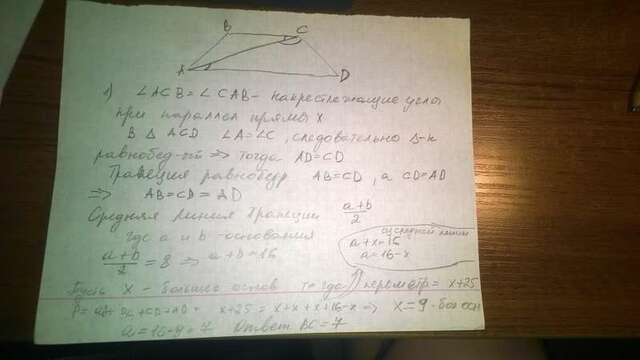 B C
A D
1) ∠ACB = ∠CAB - накрестлежащие углы
при параллел прямых
В Δ ACD ∠A = ∠C, следовательно Δ-к
равнобед-ый => тогда AD = CD
Трапеция равнобедр AB = CD, а CD = AD
=> AB = CD = AD
Средняя линия трапеции a+b/2
где a и b - основания
a+b/2 = 8 => a+b=16
из средней линии
a+x=16
a=16-x
Пусть x - большее основ тогда периметр = x+25
x+25 = x+x+x+16-x => x=9 - бол осн
a=16-9=7 Ответ BC=7